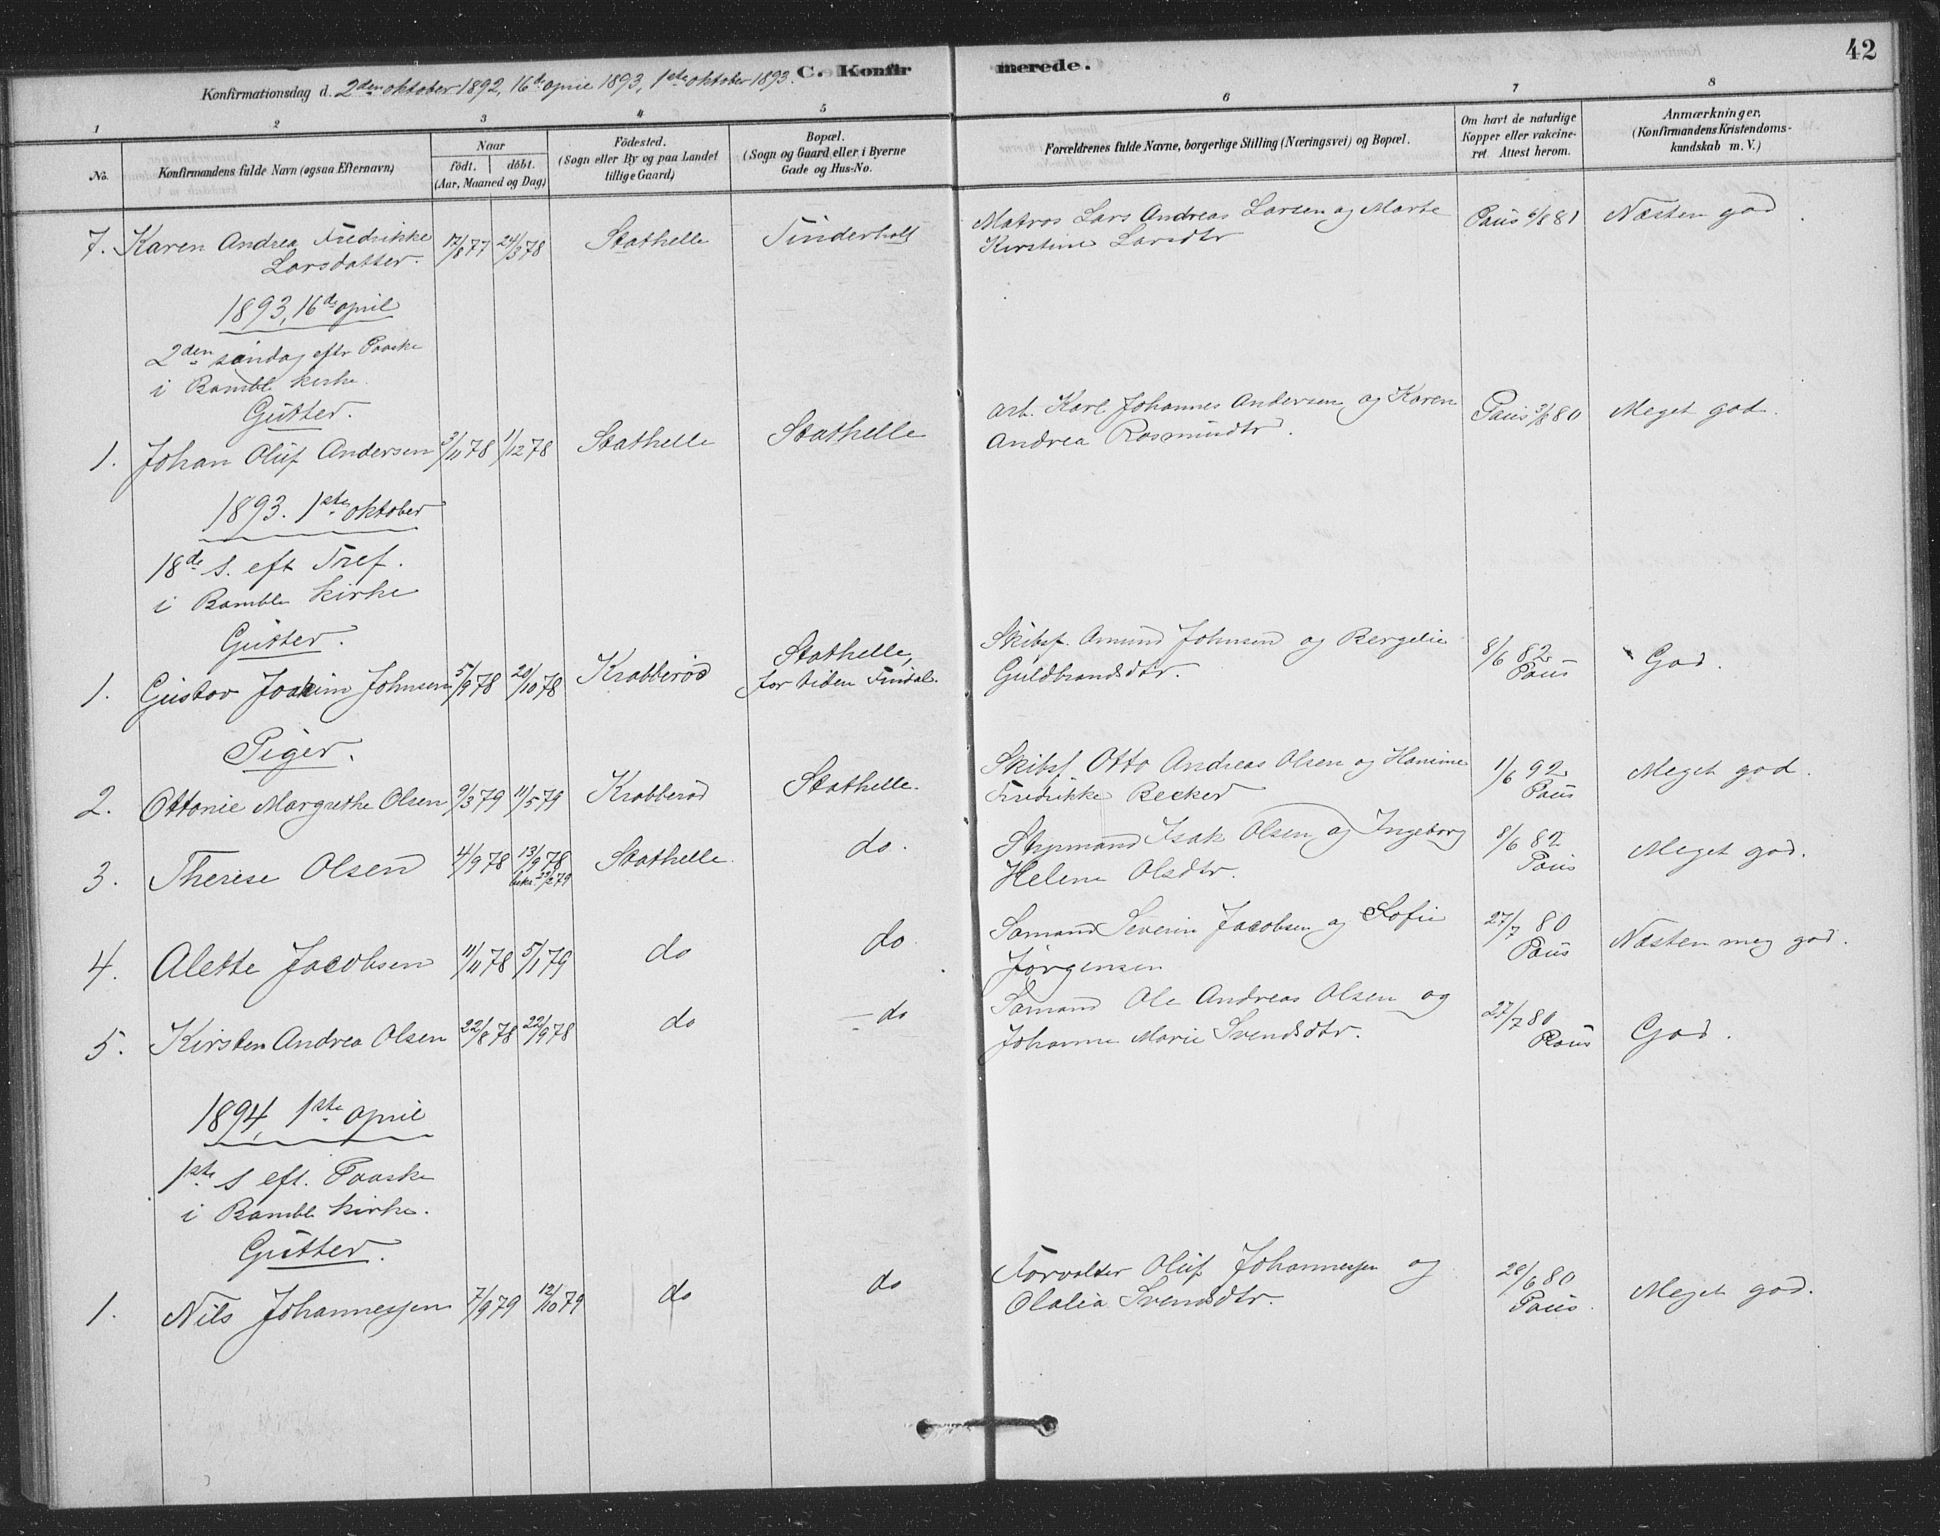 42
C. Konfirmerede.
Konfirmationsdag d. 2den oktober 1892, 16de april 1893, 1ste oktober 1893.
1 2 3 4 5 6 7 8
No.
Konfirmandens fulde Navn (ogsaa Efternavn)
Naar
födt. döbt.
(Aar, Maaned og Dag)
Födested.
(Sogn eller By og paa Landet
tillige Gaard)
Bopæl.
(Sogn og Gaard eller i Byerne
Gade og Hus-No.
Forældrenes fulde Navne, borgerlige Stilling (Næringsvei) og Bopæl.
Om havt de naturlige
Kopper eller vakcine-
ret. Attest herom.
Anmærkninger.
(Konfirmandens Kristendoms-
kundskab m. V.)
7. Karen Andrea Fredrikke 12/8 77 24/3 78 Stathelle Tinderholt Matros Lars Andreas Larsen og Marte Paus 6/8 81 Næsten god.
Larsdatter. Kirstine Larsdtr
1893, 16de april
2den søndag eftr Paaske
i Bamble kirke.
Gutter.
1. Johan Oluf Andersen 3/11 78 1/12 78 Stathelle Stathelle Arb. Karl Johannes Andersen og Karen Paus 3/8 80 Meget god.
Andrea Rasmundtr.
1893. 1ste oktober
18de s. eft Tref.
i Bamble kirke
Gutter.
1. Gustav Joakim Johnsen 5/9 78 20/10 78 Krabberød Stathelle, Skibsf. Amund Johnsen og Bergelie 8/6 82 God.
for tiden Findal. Guldbrandsdtr. Paus
Piger.
2. Ottonie Margrethe Olsen 9/3 79 11/5 79 Krabberød Stathelle. Skibsf. Otto Andreas Olsen og Hanine 1/6 92 Meget god.
Fredrikke Becker Paus
3. Therese Olsen 4/9 78 13/9 78 Stathelle. do. Styrmand Isak Olsen og Ingeborg 8/6 82 Meget god.
Helene Olsdtr. Paus
4. Alette Jacobsen 11/11 78 5/1 79 do do Sømand Severin Jacobsen og Sofie 27/7 80 Næsten meg god.
Jørgensen Paus
5. Kirsten Andrea Olsen 22/8 78 22/9 78 do do Sømand Ole Andreas Olsen og 27/7 80 God.
Johanne Marie Svendsdtr. Paus
1894, 1ste april
1ste s eft. Paaske
i Bamble kirke.
Gutter.
1. Nils Johannessen 7/9 79 12/10 79 do do Forvalter Oluf Johannessen og 28/6 80 Meget god.
Olalia Svendsdtr. Paus.